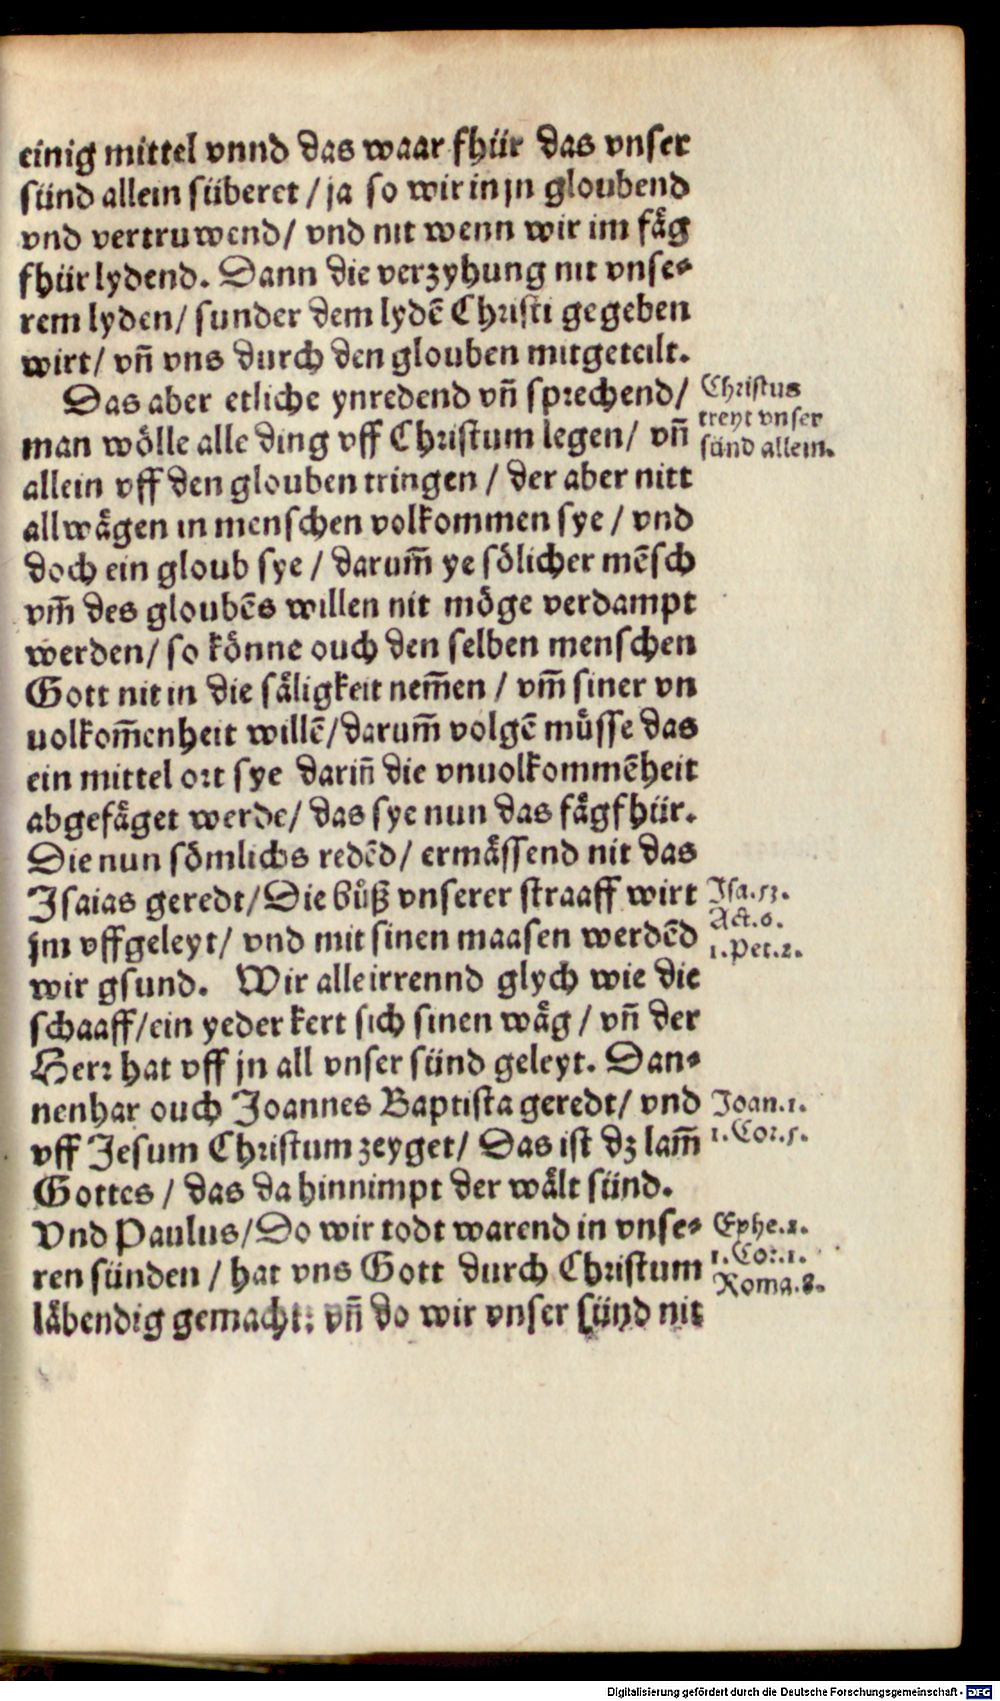 einig mittel vnnd das waar fhür das vnser
sünd allein süberet / ja so wir in jn gloubend
vnd vertruwend / vnd nit wenn wir im fäg
fhür lydend. Dann die verzyhung nit vnse⸗
rem lyden / sunder dem lydē Christi gegeben
wirt / vn̄ vns durch den glouben mitgeteilt.
Das aber etliche ynredend vn̄ sprechend /
man wölle alle ding vff Christum legen / vn̄
allein vff den glouben tringen / der aber nitt
allwägen in menschen volkommen sye / vnd
doch ein gloub sye / darum̄ ye sölicher mēsch
vm̄ des gloubēs willen nit möge verdampt
werden / so könne ouch den selben menschen
Gott nit in die säligkeit nem̄en / vm̄ siner vn
uolkom̄enheit willē / darum̄ volgē müsse das
ein mittel ort sye darin̄ die vnuolkommēheit
abgefäget werde / das sye nun das fägfhür.
Die nun sömlichs redēd / ermässend nit das
Isaias geredt / Die bůß vnserer straaff wirt
jm vffgeleyt / vnd mit sinen maasen werdēd
wir gsund. Wir alle irrennd glych wie die
schaaff / ein yeder kert sich sinen wäg / vn̄ der
Herr hat vff jn all vnser sünd geleyt. Dan⸗
nenhar ouch Joannes Baptista geredt / vnd
vff Jesum Christum zeyget / Das ist dz lam̄
Gottes / das da hinnimpt der wält sünd.
Vnd Paulus / Do wir todt warend in vnse⸗
ren sünden / hat vns Gott durch Christum
läbendig gemacht: vn̄ do wir vnser sünd nit
Christus
treyt vnser
sünd allein.
Isa. 53.
Act. 8.
1. Pet. 2.
Joan. 1.
1. Cor. 5.
Ephe. 2.
1. Cor. 1.
Roma. 8.
Digitalisierung gefördert durch die Deutsche Forschungsgemeinschaft - DFG